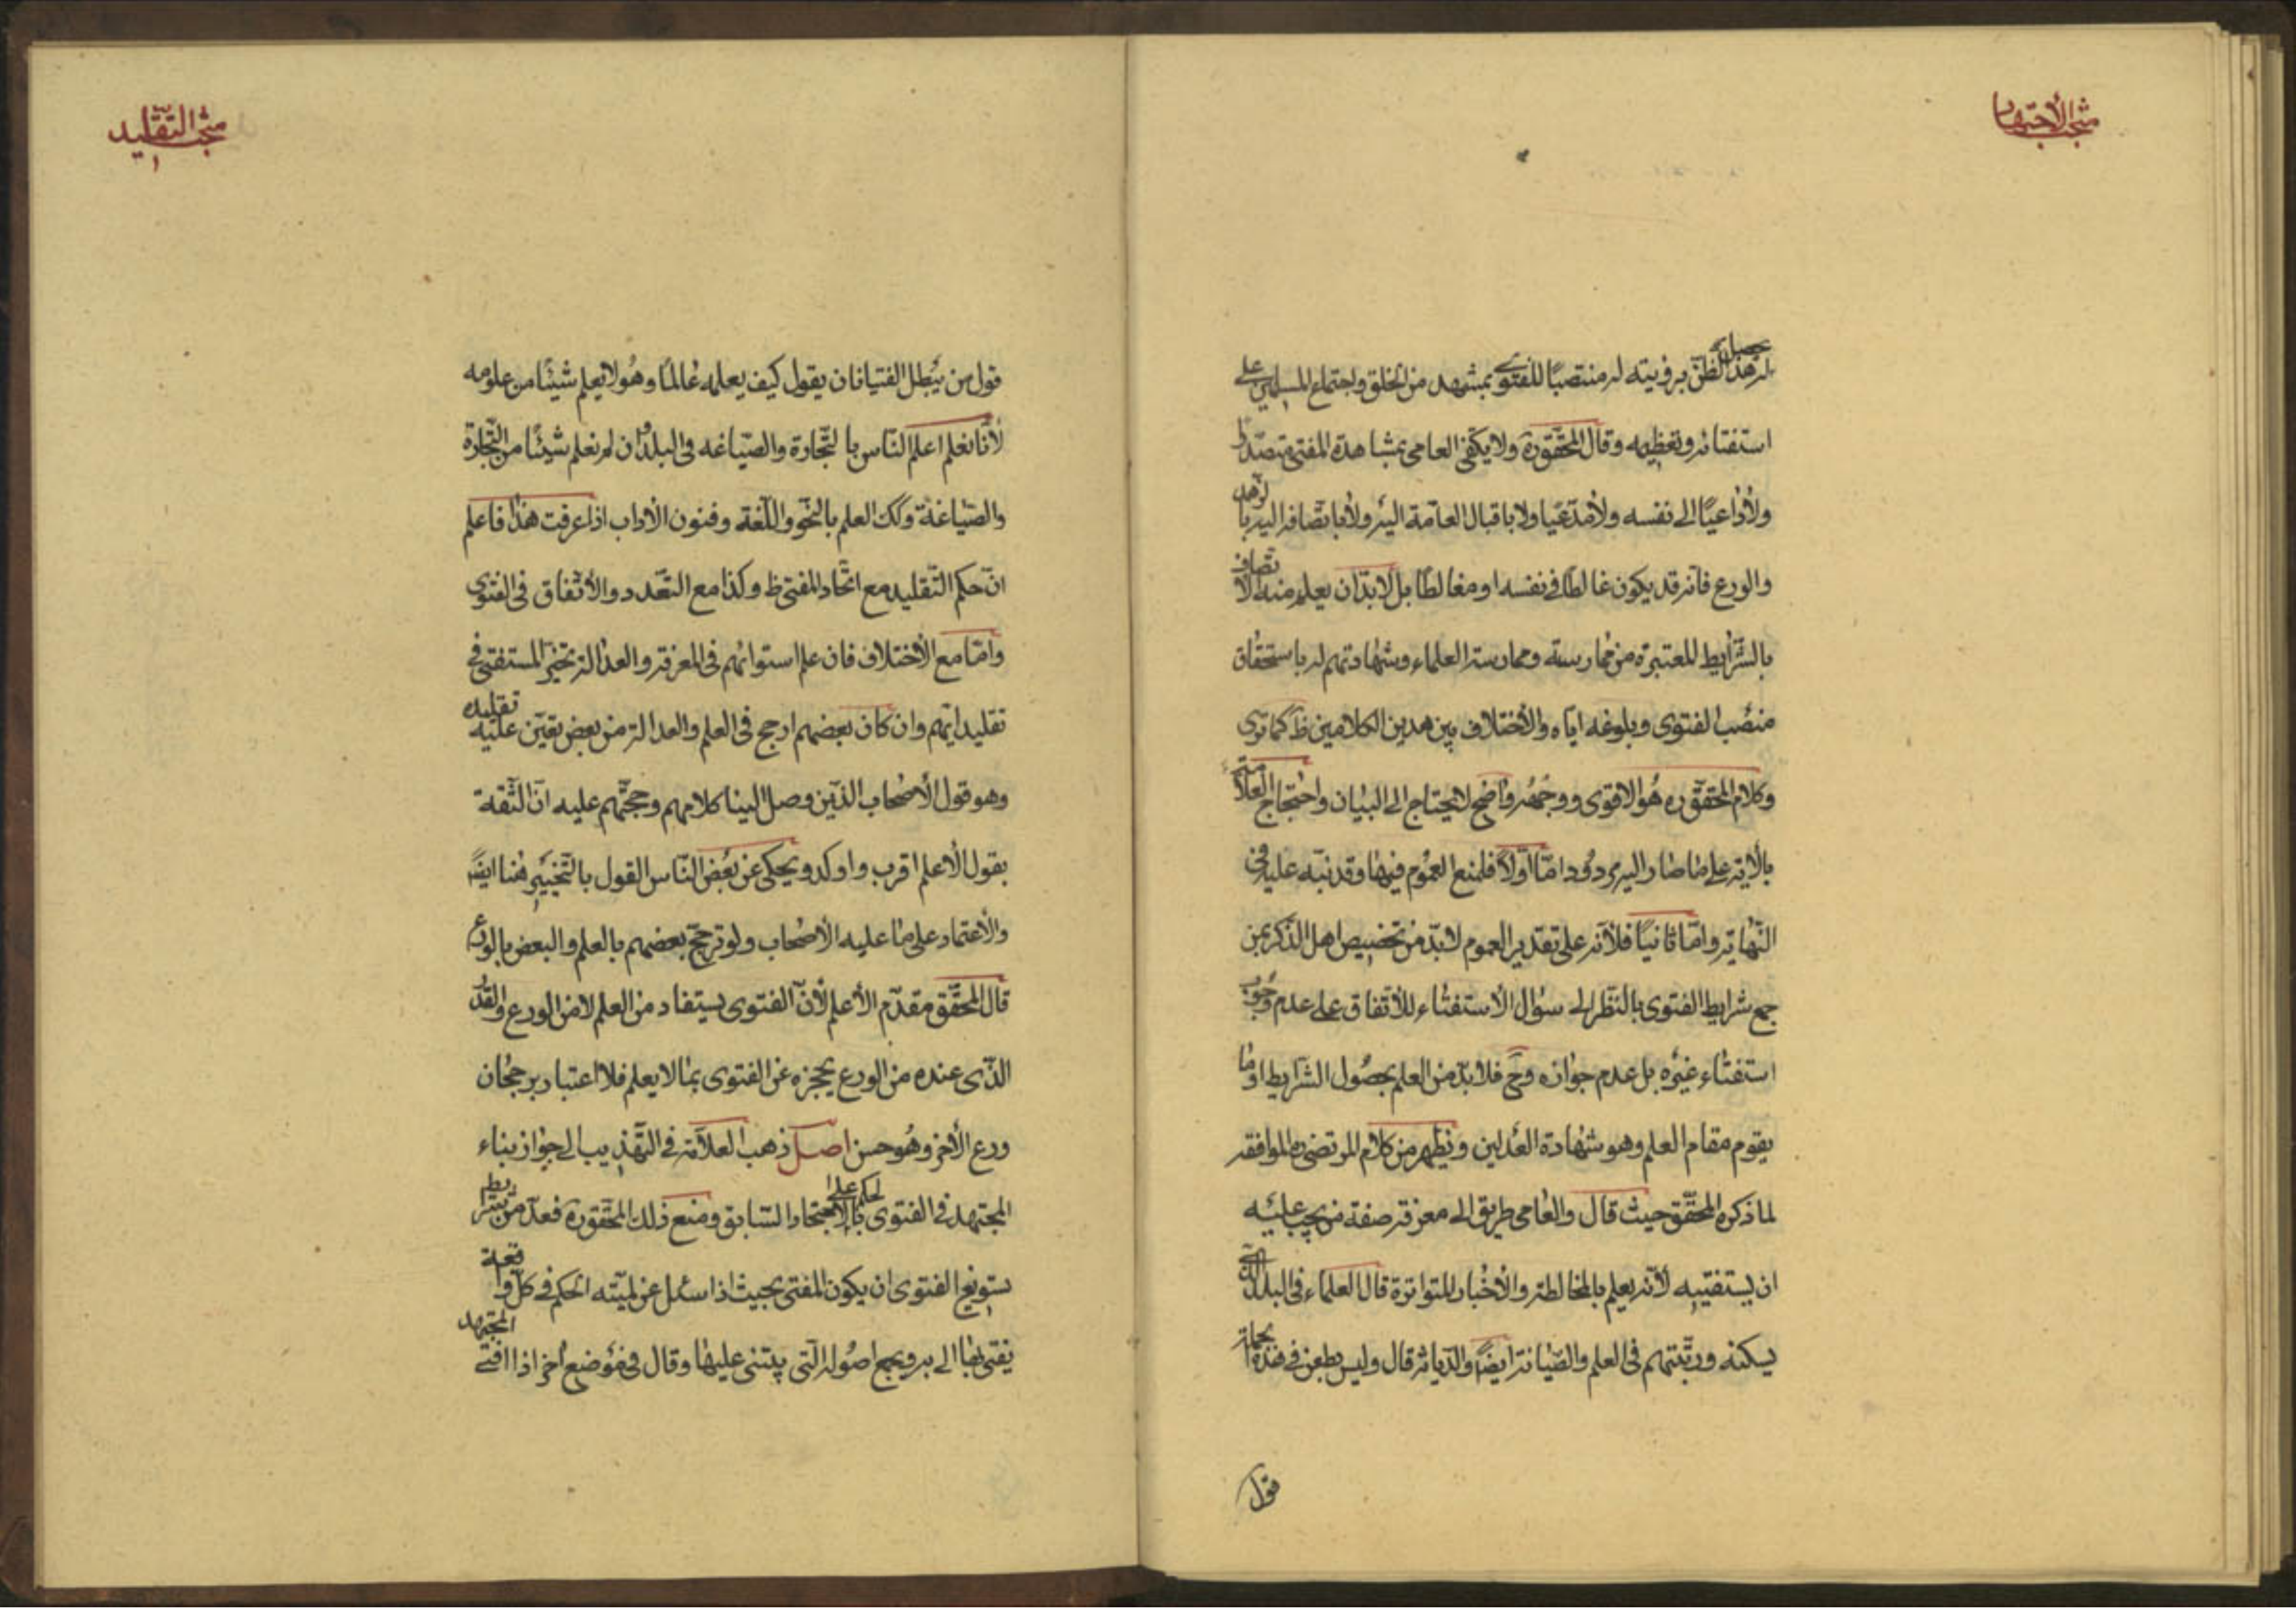 مبحث الاجتهاد
له هذا الظن برؤيته له منتصبا للفتوى بمشهد من الخلق واجتماع المسلمين على
استفتائه وتعظيمه وقال المحقق ره ولا يكتفى العامى بمشاهدة المفتى متصدرا
ولا داعيا الى نفسه ولا مدعيا ولا باقبال العامة اليه ولا باتصافه بالزهد
والورع فانه قد يكون غالطا فى نفسه او مغالطا بل لا بد ان يعلم منه الاتصاف
بالشرايط المعتبرة من ممارسته وممارسة العلماء وشهادتهم له باستحقاق
منصب الفتوى وبلوغه اياه والاختلاف بين هذين الكلامين ظ كما ترى
وكلام المحقق ره هو الاقوى ووجهه واضح لا يحتاج الى البيان واحتجاج العلامة
بالاية على ما صار اليه مردود اما اولا فلمنع العموم فيها وقد نبه عليه فى
النهاية واما ثانيا فلانه على تقدير العموم لا بد من تخصيص اهل الذكر بمن
جمع شرايط الفتوى بالنظر الى سؤال الاستفتاء للاتفاق على عدم وجوب
استفتاء غيره بل عدم جوازه وح فلا بد من العلم بحصول الشرايط او ما
يقوم مقام العلم وهو شهادة العدلين ويظهر من كلام المرتضى ره الموافقة
لما ذكره المحقق حيث قال وللعامى طريق الى معرفة صفة من يجب عليه
ان يستفتيه لانه يعلم بالمخالطة والاخبار المتواترة قال العلماء فى البلد الذى
يسكنه ورتبتهم فى العلم والصيانة ايضا والديانة قال وليس يطعن فى هذه الجملة
قول
مبحث التقليد
قول من يبطل الفتيا فان يقول كيف يعلمه عالما وهو لا يعلم شيئا من علومه
لانا نعلم اعلم الناس بالتجارة والصياغه فى البلد وان لم نعلم شيئا من التجارة
والصياغة وكك العلم بالنحو واللغة وفنون الاداب اذا عرفت هذا فاعلم
ان حكم التقليد مع اتحاد المفتى ظ وكذا مع التعدد والاتفاق فى الفتوى
واما مع الاختلاف فان علم استوائهم فى المعرفة والعدالة تخير المستفتى فى
تقليد ايهم وان كان بعضهم ارجح فى العلم والعدالة من بعض تعين عليه تقليده
وهو قول الاصحاب الذين وصل الينا كلامهم وحجتهم عليه ان الثقة
بقول الاعلم اقرب واوكد ويحكى عن بعض الناس القول بالتخيير هنا ايضا
والاعتماد على ما عليه الاصحاب ولو ترجح بعضهم بالعلم والبعض بالورع
قال المحقق مقدم الاعلم لان الفتوى يستفاد من العلم لا من الورع والقدر
الذى عنده من الورع يحجزه عن الفتوى بما لا يعلم فلا اعتبار برجحان
ورع الاخر وهو حسن اصل ذهب العلامة فى التهذيب الى جواز بناء
المجتهد فى الفتوى بالحكم على الاجتهاد السابق ومنع ذلك المحقق ره فعد من شرايط
تسويغ الفتوى ان يكون المفتى بحيث اذا سئل عن لمية الحكم فى كل واقعة
يفتى بها الى به وبجميع اصوله التى يبتنى عليها وقال فى موضع اخر اذا افتى المجتهد